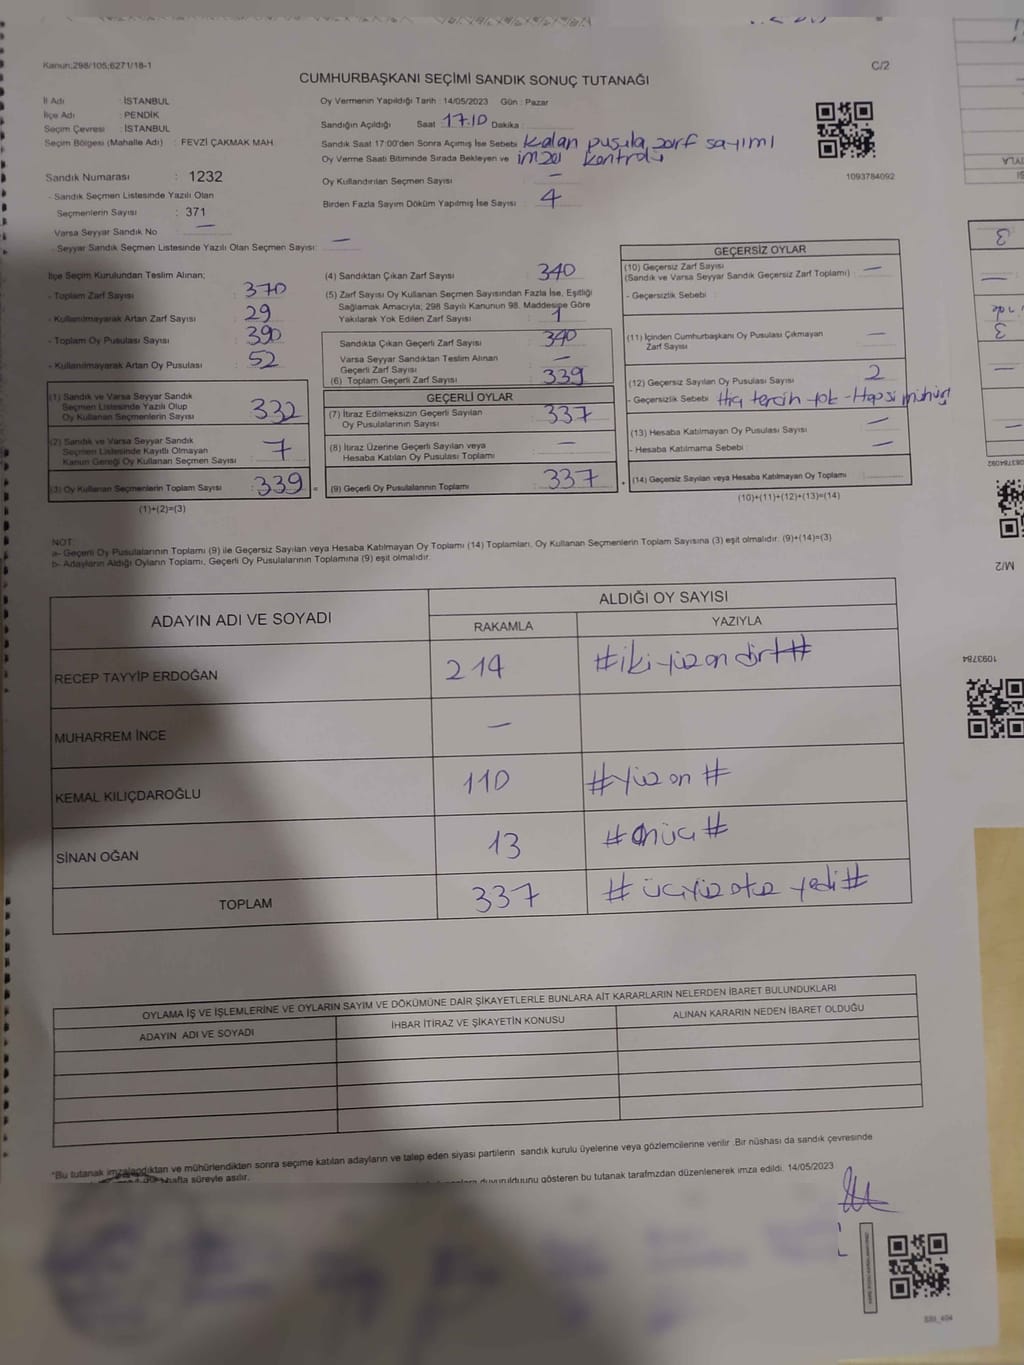 Kanun;298/105;6271/18-1
C/2
CUMHURBAŞKANI SEÇİMİ SANDIK SONUÇ TUTANAĞI
İl Adı : İSTANBUL
İlçe Adı : PENDİK
Seçim Çevresi : İSTANBUL
Seçim Bölgesi (Mahalle Adı) : FEVZİ ÇAKMAK MAH.
Sandık Numarası : 1232
- Sandık Seçmen Listesinde Yazılı Olan
Seçmenlerin Sayısı : 371
-Varsa Seyyar Sandık No : —
- Seyyar Sandık Seçmen Listesinde Yazılı Olan Seçmen Sayısı: —
Oy Vermenin Yapıldığı Tarih : 14/05/2023 Gün : Pazar
Sandığın Açıldığı Saat 17.10 Dakika :
Sandık Saat 17:00'den Sonra Açımış İse Sebebi Kalan pusula zarf sayımı
Oy Verme Saati Bitiminde Sırada Bekleyen ve imza kontrolü
Oy Kullandırılan Seçmen Sayısı —
Birden Fazla Sayım Döküm Yapılmış İse Sayısı : 4
1093784092
İlçe Seçim Kurulundan Teslim Alınan;
- Toplam Zarf Sayısı : 370
- Kullanılmayarak Artan Zarf Sayısı : 29
- Toplam Oy Pusulası Sayısı : 390
- Kullanılmayarak Artan Oy Pusulası : 52
(1) Sandık ve Varsa Seyyar Sandık
Seçmen Listesinde Yazılı Olup
Oy Kullanan Seçmenlerin Sayısı 332
(2) Sandık ve Varsa Seyyar Sandık
Seçmen Listesinde Kayıtlı Olmayan
Kanun Gereği Oy Kullanan Seçmen Sayısı 7
(3) Oy Kullanan Seçmenlerin Toplam Sayısı 339
(1)+(2)=(3)
(4) Sandıktan Çıkan Zarf Sayısı 340
(5) Zarf Sayısı Oy Kullanan Seçmen Sayısından Fazla İse, Eşitliği
Sağlamak Amacıyla; 298 Sayılı Kanunun 98. Maddesine Göre
Yakılarak Yok Edilen Zarf Sayısı 1
Sandıkta Çıkan Geçerli Zarf Sayısı 340
Varsa Seyyar Sandıktan Teslim Alınan
Geçerli Zarf Sayısı —
(6) Toplam Geçerli Zarf Sayısı 339
GEÇERLİ OYLAR
(7) İtiraz Edilmeksizin Geçerli Sayılan
Oy Pusulalarının Sayısı 337
(8) İtiraz Üzerine Geçerli Sayılan veya
Hesaba Katılan Oy Pusulası Toplamı —
(9) Geçerli Oy Pusulalarının Toplamı 337
GEÇERSİZ OYLAR
(10) Geçersiz Zarf Sayısı
(Sandık ve Varsa Seyyar Sandık Geçersiz Zarf Toplamı) : —
- Geçersizlik Sebebi :
(11) İçinden Cumhurbaşkanı Oy Pusulası Çıkmayan
Zarf Sayısı —
(12) Geçersiz Sayılan Oy Pusulası Sayısı 2
- Geçersizlik Sebebi Hiç tercih yok - Hepsi mühür
(13) Hesaba Katılmayan Oy Pusulası Sayısı —
- Hesaba Katılmama Sebebi : —
(14) Geçersiz Sayılan veya Hesaba Katılmayan Oy Toplamı
(10)+(11)+(12)+(13)=(14)
NOT:
a- Geçerli Oy Pusulalarının Toplamı (9) ile Geçersiz Sayılan veya Hesaba Katılmayan Oy Toplamı (14) Toplamları, Oy Kullanan Seçmenlerin Toplam Sayısına (3) eşit olmalıdır. (9)+(14)=(3)
b- Adayların Aldığı Oyların Toplamı, Geçerli Oy Pusulalarının Toplamına (9) eşit olmalıdır.
ADAYIN ADI VE SOYADI
ALDIĞI OY SAYISI
RAKAMLA YAZIYLA
RECEP TAYYİP ERDOĞAN 214 #iki yüz on dört#
MUHARREM İNCE —
KEMAL KILIÇDAROĞLU 110 #yüz on#
SİNAN OĞAN 13 #onüç#
TOPLAM 337 #üçyüz otuz yedi#
OYLAMA İŞ VE İŞLEMLERİNE VE OYLARIN SAYIM VE DÖKÜMÜNE DAİR ŞİKAYETLERLE BUNLARA AİT KARARLARIN NELERDEN İBARET BULUNDUKLARI
ADAYIN ADI VE SOYADI İHBAR İTİRAZ VE ŞİKAYETİN KONUSU ALINAN KARARIN NEDEN İBARET OLDUĞU
*Bu tutanak imzalandıktan ve mühürlendikten sonra seçime katılan adayların ve talep eden siyasi partilerin sandık kurulu üyelerine veya gözlemcilerine verilir. Bir nüshası da sandık çevresinde
hafta süreyle asılır.
duyurulduğunu gösteren bu tutanak tarafımzdan düzenlenerek imza edildi. 14/05/2023
M/2
1093784